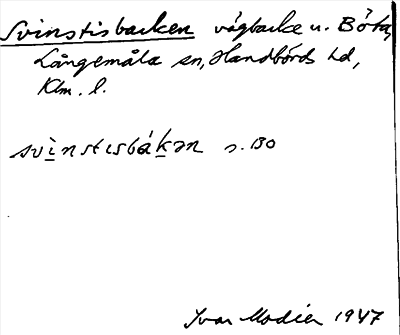 Svinstisbacken vägbacke u. Böta,
Långemåla sn, Handbörds hd,
Klm. l.
svìnstɩsbákən s. 130
Ivar Modéer 1947